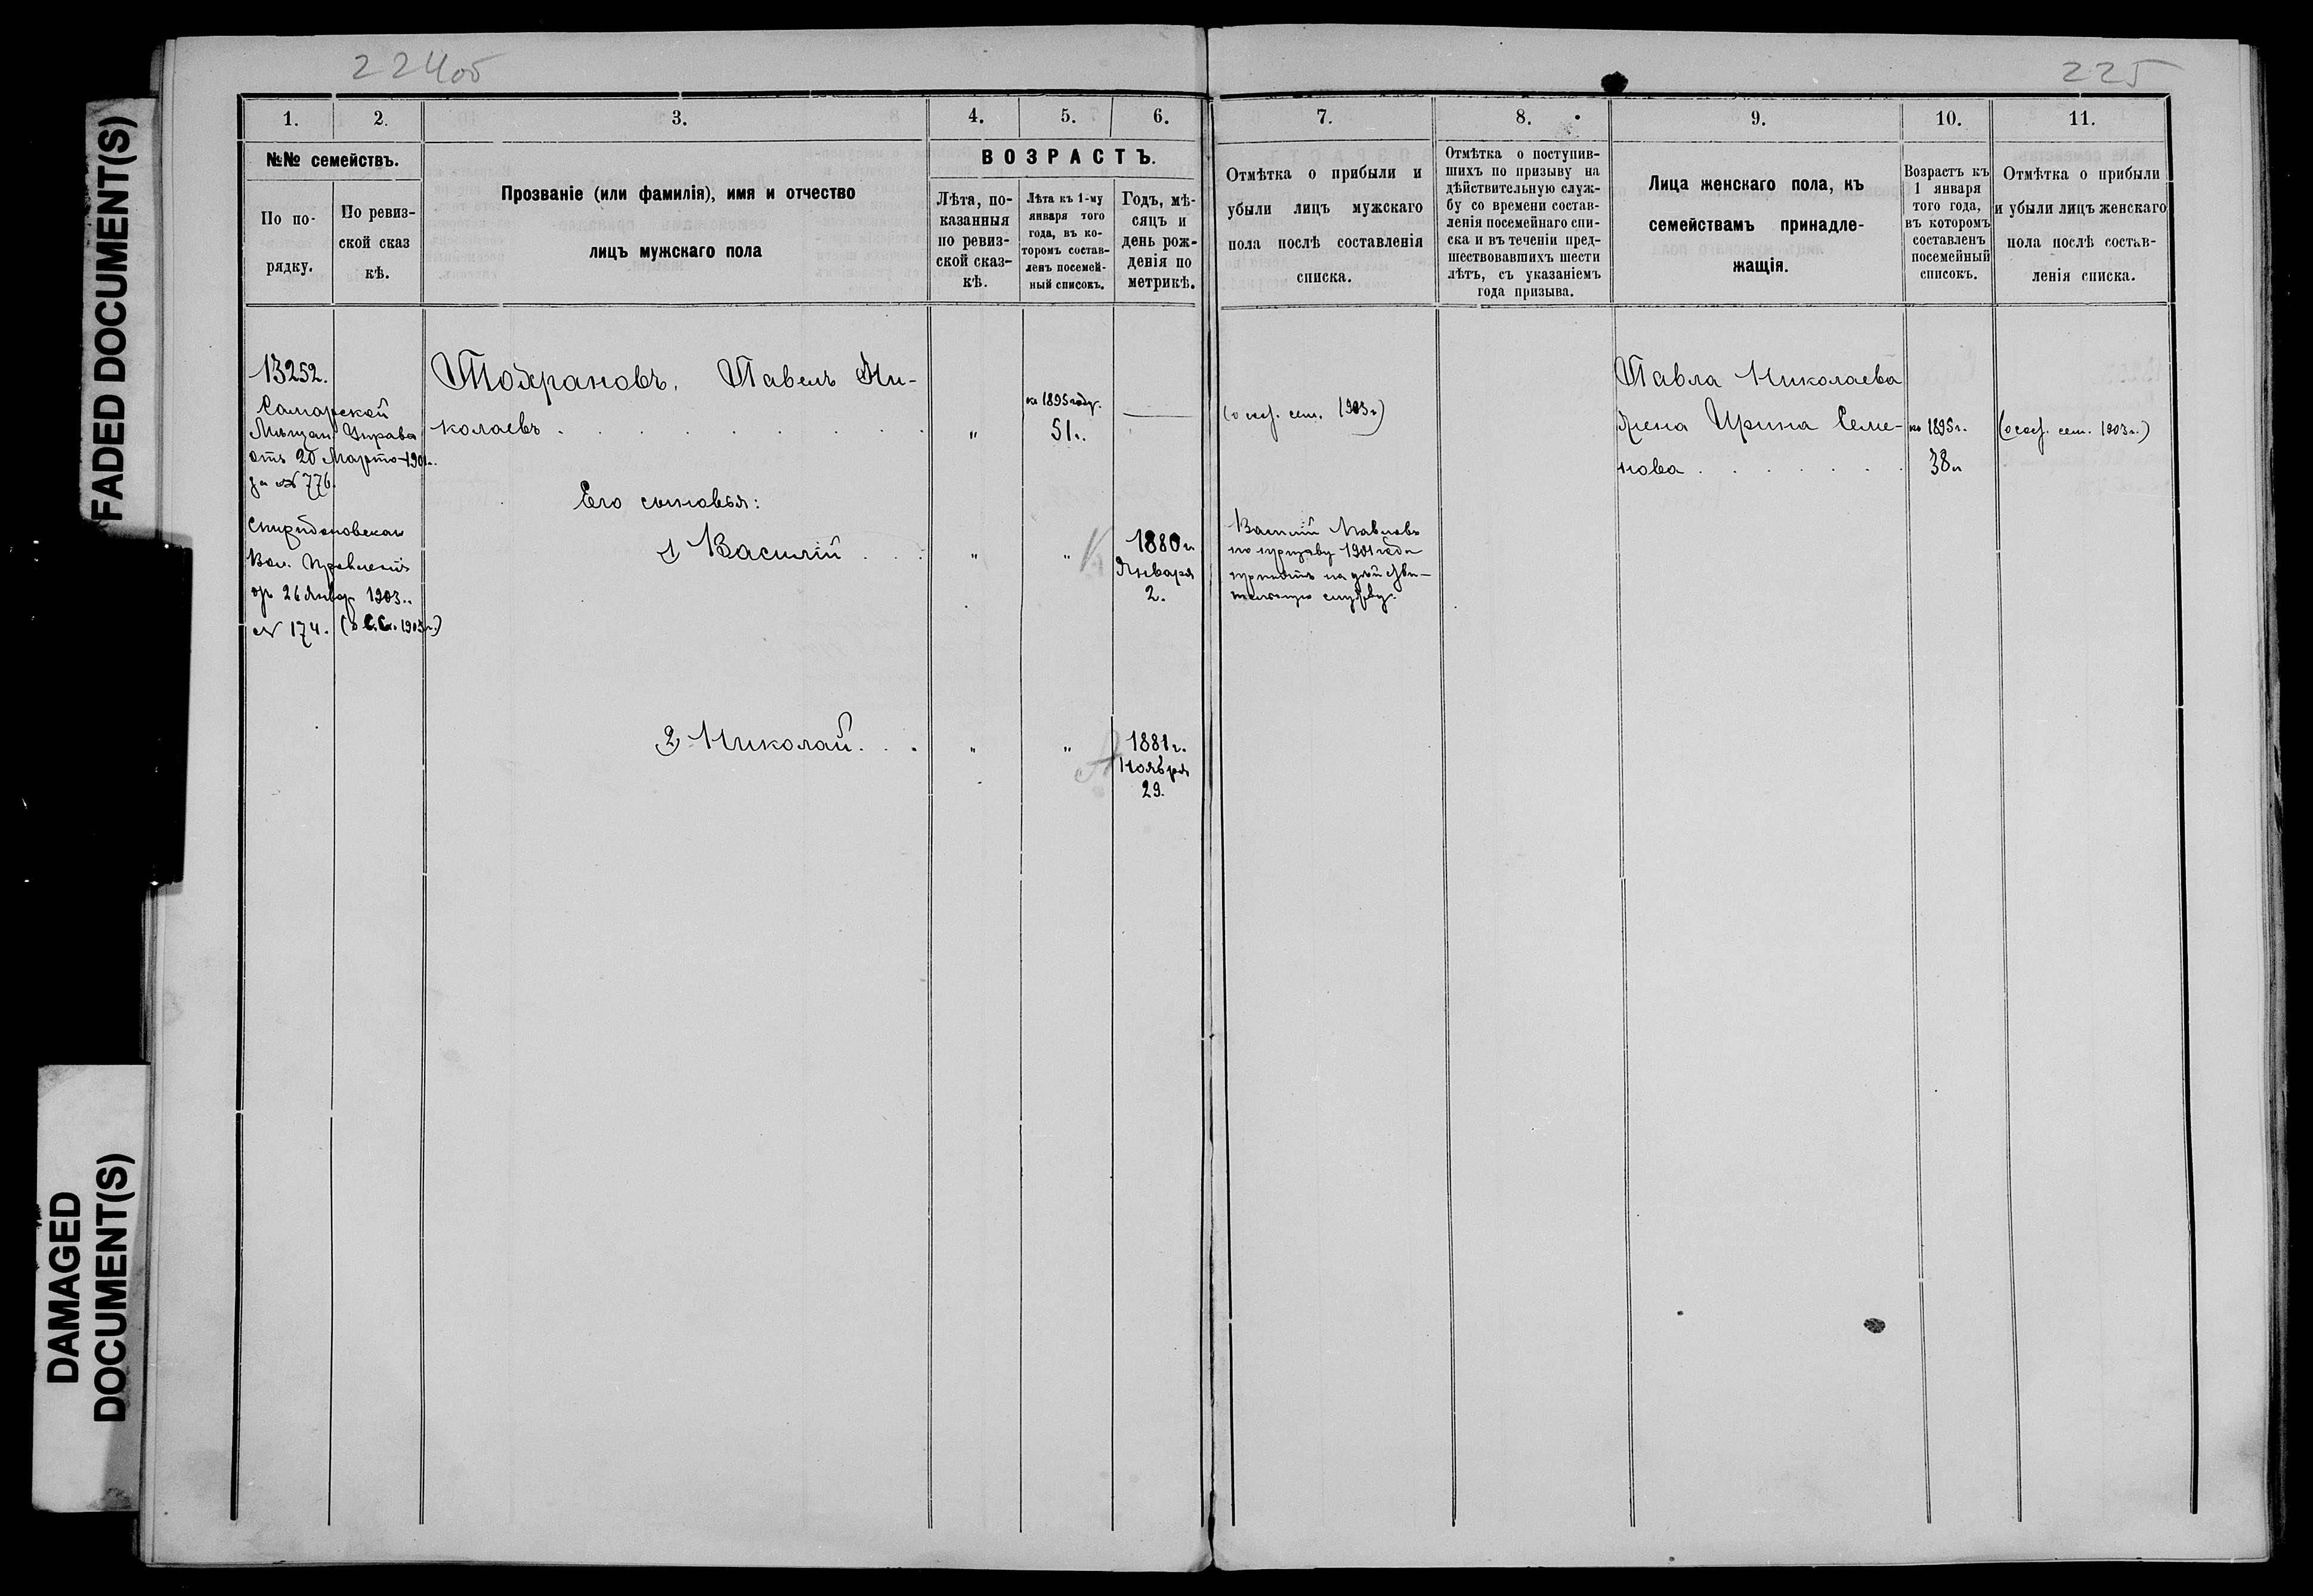 224об
225
FADED DOCUMENT(S)
DAMAGED
DOCUMENT(S)
1.
2.
3.
4.
5.
6.
7.
8.
9.
10.
11.
№№ семействъ.
По по-
рядку.
По ревиз-
ской сказ
кѣ.
Прозваніе (или фамилія), имя и отчество
лицъ мужскаго пола
ВОЗРАСТЪ.
Лѣта, по-
казанныя
по ревиз-
ской сказ-
кѣ.
Лѣта къ 1-му
января того
года, въ ко-
торомъ состав-
ленъ посемей-
ный списокъ.
Годъ, мѣ-
сяцъ и
день рож-
денія по
метрикѣ.
Отмѣтка о прибыли и
убыли лицъ мужскаго
пола послѣ составленія
списка.
Отмѣтка о поступив-
шихъ по призыву на
дѣйствительную служ-
бу со времени состав-
ленія посемейнаго спи-
ска и въ теченіи пред-
шествовавшихъ шести
лѣтъ, съ указаніемъ
года призыва.
Лица женскаго пола, къ
семействамъ принадле-
жащія.
Возрастъ къ
1 января
того года,
въ которомъ
составленъ
посемейный
списокъ.
Отмѣтка о прибыли
и убыли лицъ женскаго
пола послѣ состав-
ленія списка.
13252.
Самарской
Мѣщан. Управа
отъ 20 Марта 1901г.
за № 776.
Вол. Правленія
26 Январ 1903г.
№ 174. 1903г.)
Павелъ Ни-
колаевъ
" 
къ 1895 году.
51г.
(о сост. сем. 1903г)
Его сыновья:
1 Василій
"
"
1880г
Января
2.
Василій Павловъ
по призыву 1901 года
принятъ на дѣйстви-
тельную службу.
2, Николай
"
"
1881г.
Ноября
29.
Павла Николаева
жена Ирина Семе-
нова
къ 1895г.
38л
(о сост. сем. 1903г.)